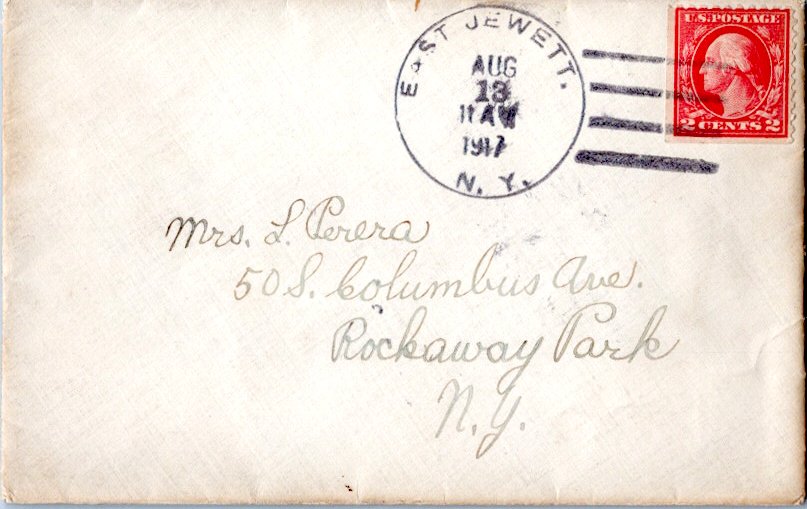 EAST JEWETT.
AUG
13
11 AM
1917
N. Y.
U.S. POSTAGE
2 CENTS 2
Mrs. L. Perera
50 S. Columbus Ave.
Rockaway Park
N.Y.